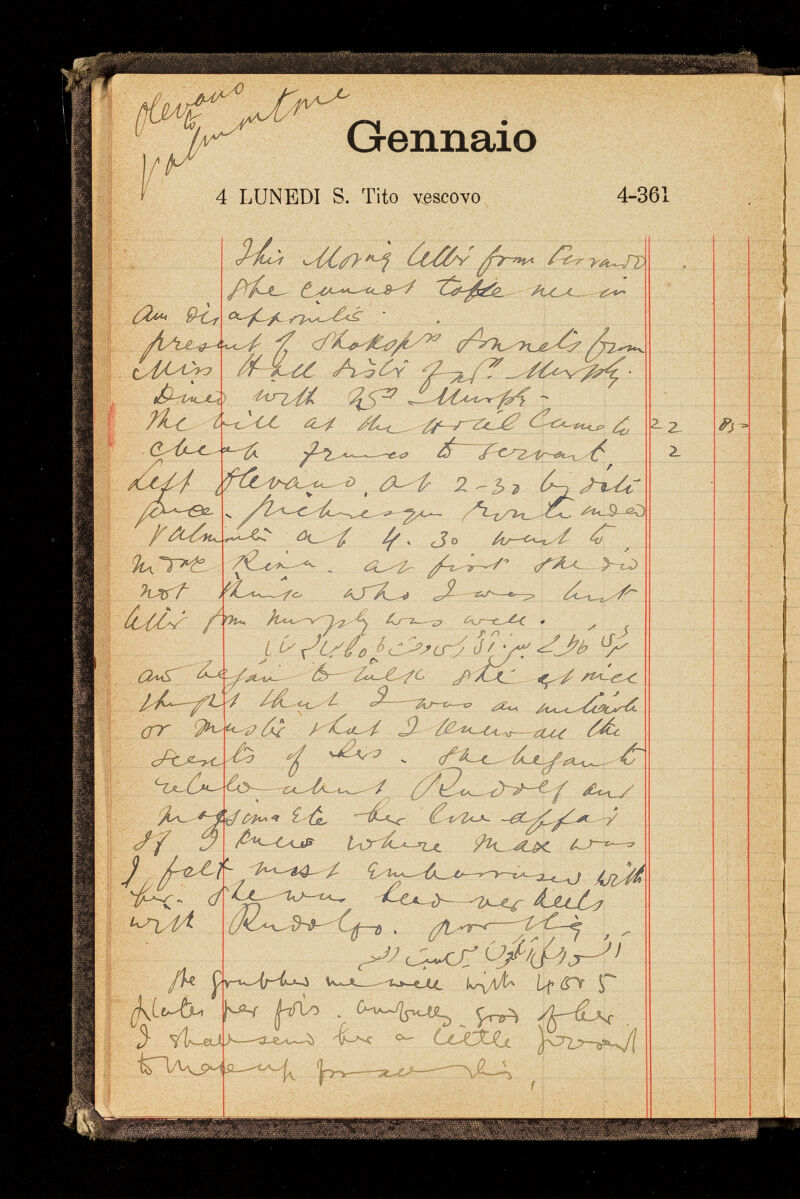 Olevano
to
Valmontone
Gennaio
4 LUNEDI S. Tito vescovo 4-361
This Morning letter from
She cannot take me in
Am disappointed
present of Shaksprs Sonnets from
Miss Hall Sister of Mrs. Murphy.
Dined with Mrs Murphy -
The bill at the Hotel Came to 22 85
2 francs to servant, 2
Left Olevano at 2-30 by dili
gence. Picturesque route indeed
Valmonte at 4.30 went to
Mdme Rina. at first she did
not think who I was but
letter from Murphy was well.
and began to talk she at once
thought that I was an
or that I knew all the
secrets of hers. She began to
relate about Rudolf and
Massima Etc her love affair
If I knew where Max was
I felt most Embarrassed with
her. She was head over heels
with Rudolfo. poor thing
She grubbed me well with 4 or 5
plates per fois. awfully good of her
I shall send her a little present
to make up for all this,